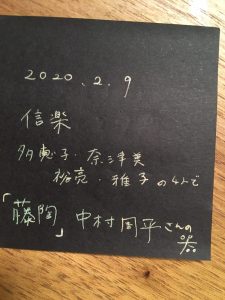 2020.2.9
信楽
多恵子・奈津美
裕亮・雅子の4人で
「藤陶」中村周平さんの